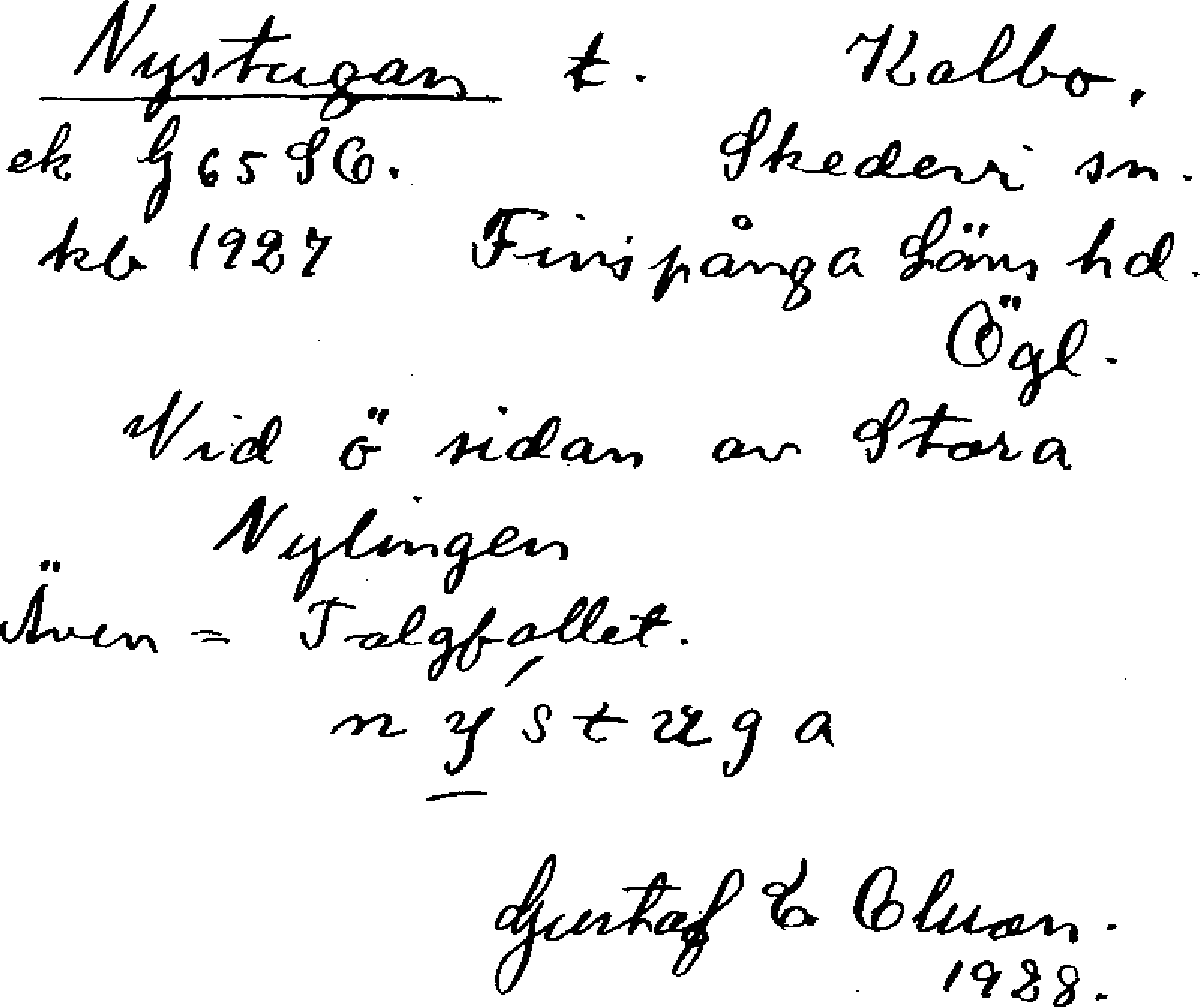 Nystugan t. Kalbo.
ek G 65 SO. Skedevi sn.
kb 1927 Finspånga Läns hd.
Ögl.
Vid ö sidan av Stora
Nylingen
Även = Talgfallet.
nýstuga
Gustaf E.
1928.